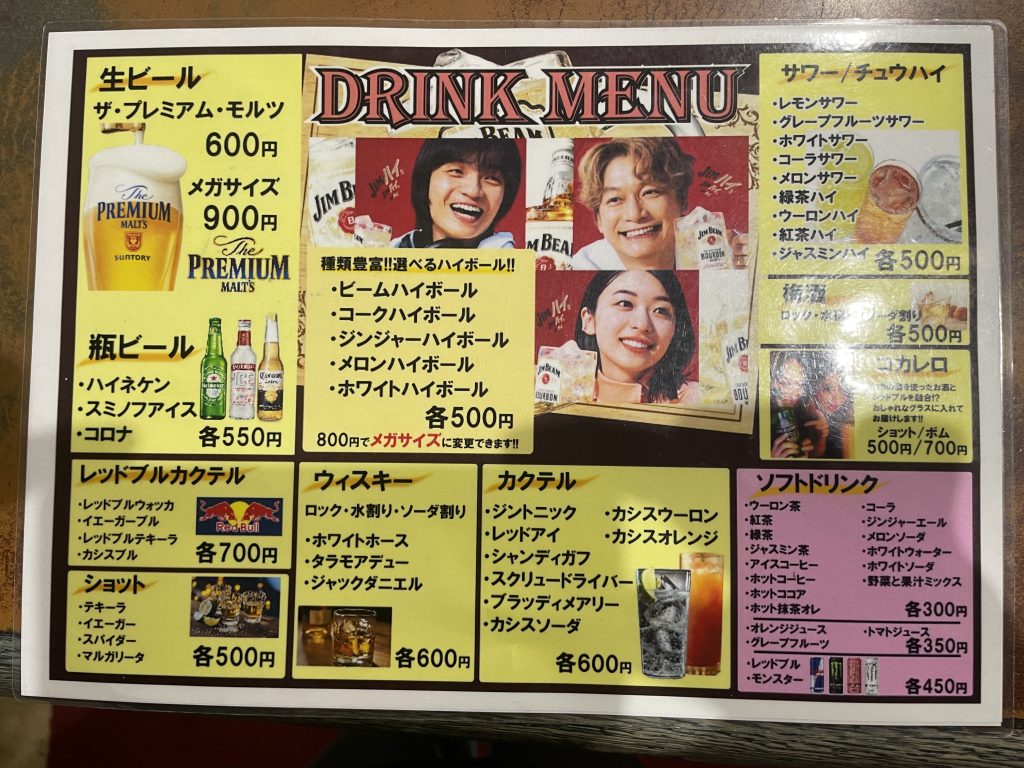 DRINK MENU
生ビール
ザ・プレミアム・モルツ
600円
メガサイズ
900円
The
PREMIUM
MALT'S
SUNTORY
The
PREMIUM
MALT'S
瓶ビール
・ハイネケン
・スミノフアイス
・コロナ
各550円
BEAM
JIM BEAM
JIM BEAM
JIM BEAM
BOURBON
JIM BEAM
BOURBON
種類豊富!!選べるハイボール!!
・ビームハイボール
・コークハイボール
・ジンジャーハイボール
・メロンハイボール
・ホワイトハイボール
各500円
800円でメガサイズに変更できます!!
サワー/チュウハイ
・レモンサワー
・グレープフルーツサワー
・ホワイトサワー
・コーラサワー
・メロンサワー
・緑茶ハイ
・ウーロンハイ
・紅茶ハイ
・ジャスミンハイ
各500円
梅酒
ロック・水割り・ソーダ割り
各500円
コカレロ
を使ったお酒と
レッドブルを融合!?
おしゃれなグラスに入れて
お届けします!!
ショット/ボム
500円/700円
レッドブルカクテル
・レッドブルウォッカ
・イエーガーブル
・レッドブルテキーラ
・カシスブル
Red Bull
各700円
ショット
・テキーラ
・イエーガー
・スパイダー
・マルガリータ
各500円
ウィスキー
ロック・水割り・ソーダ割り
・ホワイトホース
・タラモアデュー
・ジャックダニエル
各600円
カクテル
・ジントニック
・レッドアイ
・シャンディガフ
・スクリュードライバー
・ブラッディメアリー
・カシスソーダ
・カシスウーロン
・カシスオレンジ
各600円
ソフトドリンク
・ウーロン茶
・紅茶
・緑茶
・ジャスミン茶
・アイスコーヒー
・ホットコーヒー
・ホットココア
・ホット抹茶オレ
・コーラ
・ジンジャーエール
・メロンソーダ
・ホワイトウォーター
・ホワイトソーダ
・野菜と果汁ミックス
各300円
・オレンジジュース
・グレープフルーツ
・トマトジュース
各350円
・レッドブル
・モンスター
各450円